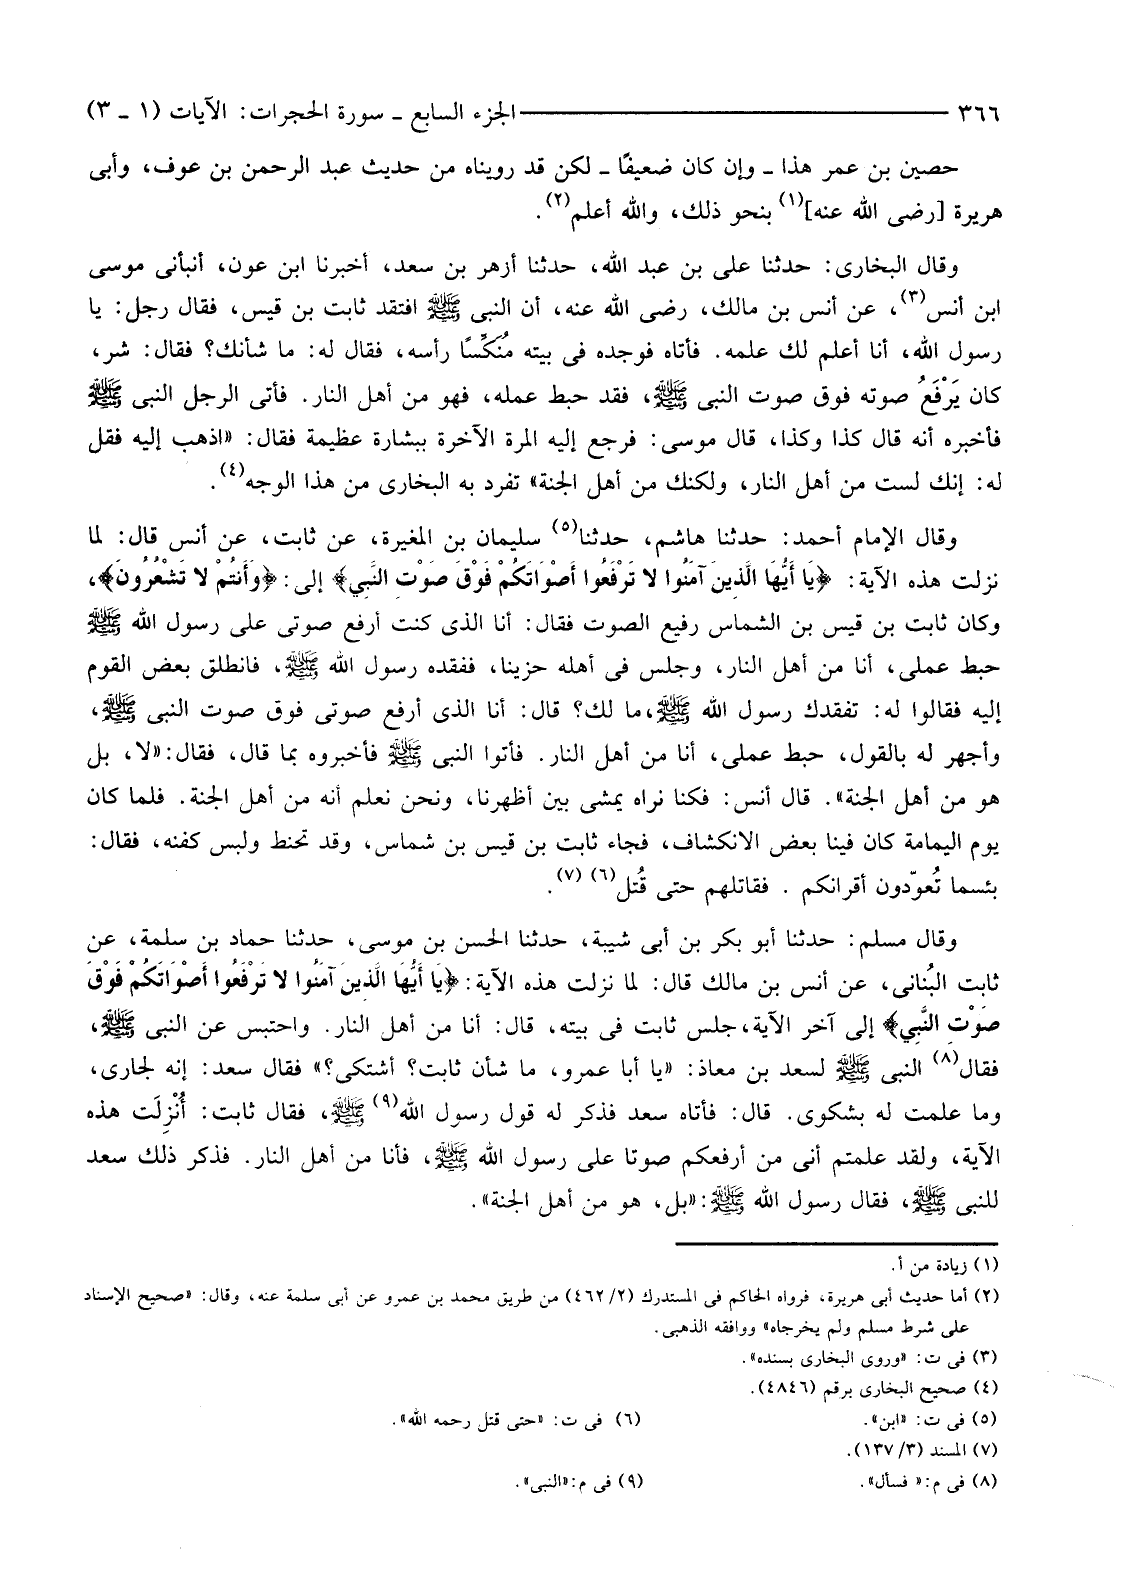 ٣٦٦ ــــــــــــــــــــ الجزء السابع ـ سورة الحجرات: الآيات (١ ـ ٣)
حصين بن عمر هذا ـ وإن كان ضعيفًا ـ لكن قد رويناه من حديث عبد الرحمن بن عوف، وأبى
هريرة [رضى الله عنه](١) بنحو ذلك، والله أعلم(٢).
وقال البخارى: حدثنا على بن عبد الله، حدثنا أزهر بن سعد، أخبرنا ابن عون، أنبأنى موسى
ابن أنس(٣)، عن أنس بن مالك، رضى الله عنه، أن النبى ﷺ افتقد ثابت بن قيس، فقال رجل: يا
رسول الله، أنا أعلم لك علمه. فأتاه فوجده فى بيته مُنَكِّسًا رأسه، فقال له: ما شأنك؟ فقال: شر،
كان يَرْفَعُ صوته فوق صوت النبى ﷺ، فقد حبط عمله، فهو من أهل النار. فأتى الرجل النبى ﷺ
فأخبره أنه قال كذا وكذا، قال موسى: فرجع إليه المرة الآخرة ببشارة عظيمة فقال: «اذهب إليه فقل
له: إنك لست من أهل النار، ولكنك من أهل الجنة» تفرد به البخارى من هذا الوجه(٤).
وقال الإمام أحمد: حدثنا هاشم، حدثنا(٥) سليمان بن المغيرة، عن ثابت، عن أنس قال: لما
نزلت هذه الآية: ﴿يَا أَيُّهَا الَّذِينَ آمَنُوا لا تَرْفَعُوا أَصْوَاتَكُمْ فَوْقَ صَوْتِ النَّبِي﴾ إلى: ﴿وَأَنتُمْ لا تَشْعُرُونَ﴾،
وكان ثابت بن قيس بن الشماس رفيع الصوت فقال: أنا الذى كنت أرفع صوتى على رسول الله ﷺ
حبط عملى، أنا من أهل النار، وجلس فى أهله حزينا، ففقده رسول الله ﷺ، فانطلق بعض القوم
إليه فقالوا له: تفقدك رسول الله ﷺ، ما لك؟ قال: أنا الذى أرفع صوتى فوق صوت النبى ﷺ،
وأجهر له بالقول، حبط عملى، أنا من أهل النار. فأتوا النبى ﷺ فأخبروه بما قال، فقال: «لا، بل
هو من أهل الجنة». قال أنس: فكنا نراه يمشى بين أظهرنا، ونحن نعلم أنه من أهل الجنة. فلما كان
يوم اليمامة كان فينا بعض الانكشاف، فجاء ثابت بن قيس بن شماس، وقد تحنط ولبس كفنه، فقال:
بئسما تُعوّدون أقرانكم . فقاتلهم حتى قُتل(٦) (٧).
وقال مسلم: حدثنا أبو بكر بن أبى شيبة، حدثنا الحسن بن موسى، حدثنا حماد بن سلمة، عن
ثابت البُنانى، عن أنس بن مالك قال: لما نزلت هذه الآية: ﴿يَا أَيُّهَا الَّذِينَ آمَنُوا لا تَرْفَعُوا أَصْوَاتَكُمْ فَوْقَ
صَوْتِ النَّبِي﴾ إلى آخر الآية، جلس ثابت فى بيته، قال: أنا من أهل النار. واحتبس عن النبى ﷺ،
فقال(٨) النبى ﷺ لسعد بن معاذ: «يا أبا عمرو، ما شأن ثابت؟ أشتكى؟» فقال سعد: إنه لجارى،
وما علمت له بشكوى. قال: فأتاه سعد فذكر له قول رسول الله(٩) ﷺ، فقال ثابت: أُنْزِلَت هذه
الآية، ولقد علمتم أنى من أرفعكم صوتا على رسول الله ﷺ، فأنا من أهل النار. فذكر ذلك سعد
للنبى ﷺ، فقال رسول الله ﷺ: «بل، هو من أهل الجنة».
(١) زيادة من أ.
(٢) أما حديث أبى هريرة، فرواه الحاكم فى المستدرك (٢/ ٤٦٢) من طريق محمد بن عمرو عن أبى سلمة عنه، وقال: «صحيح الإسناد
على شرط مسلم ولم يخرجاه» ووافقه الذهبى.
(٣) فى ت: «وروى البخارى بسنده».
(٤) صحيح البخارى برقم (٤٨٤٦).
(٥) فى ت: «ابن». (٦) فى ت: «حتى قتل رحمه الله».
(٧) المسند (٣/ ١٣٧).
(٨) فى م: « فسأل». (٩) فى م: «النبى».